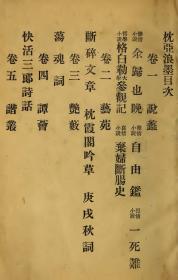 枕亞浪墨目次
卷一 說叢
余歸也晚 自由鑑 一死難
格白勒 參觀記 棄婦斷腸史
卷二 藝苑
斷碎文章 枕霞閣吟草 庚戌秋詞
卷三 艷藪
蕩魂詞
卷四 譚薈
快活三郎詩話
卷五 諧叢